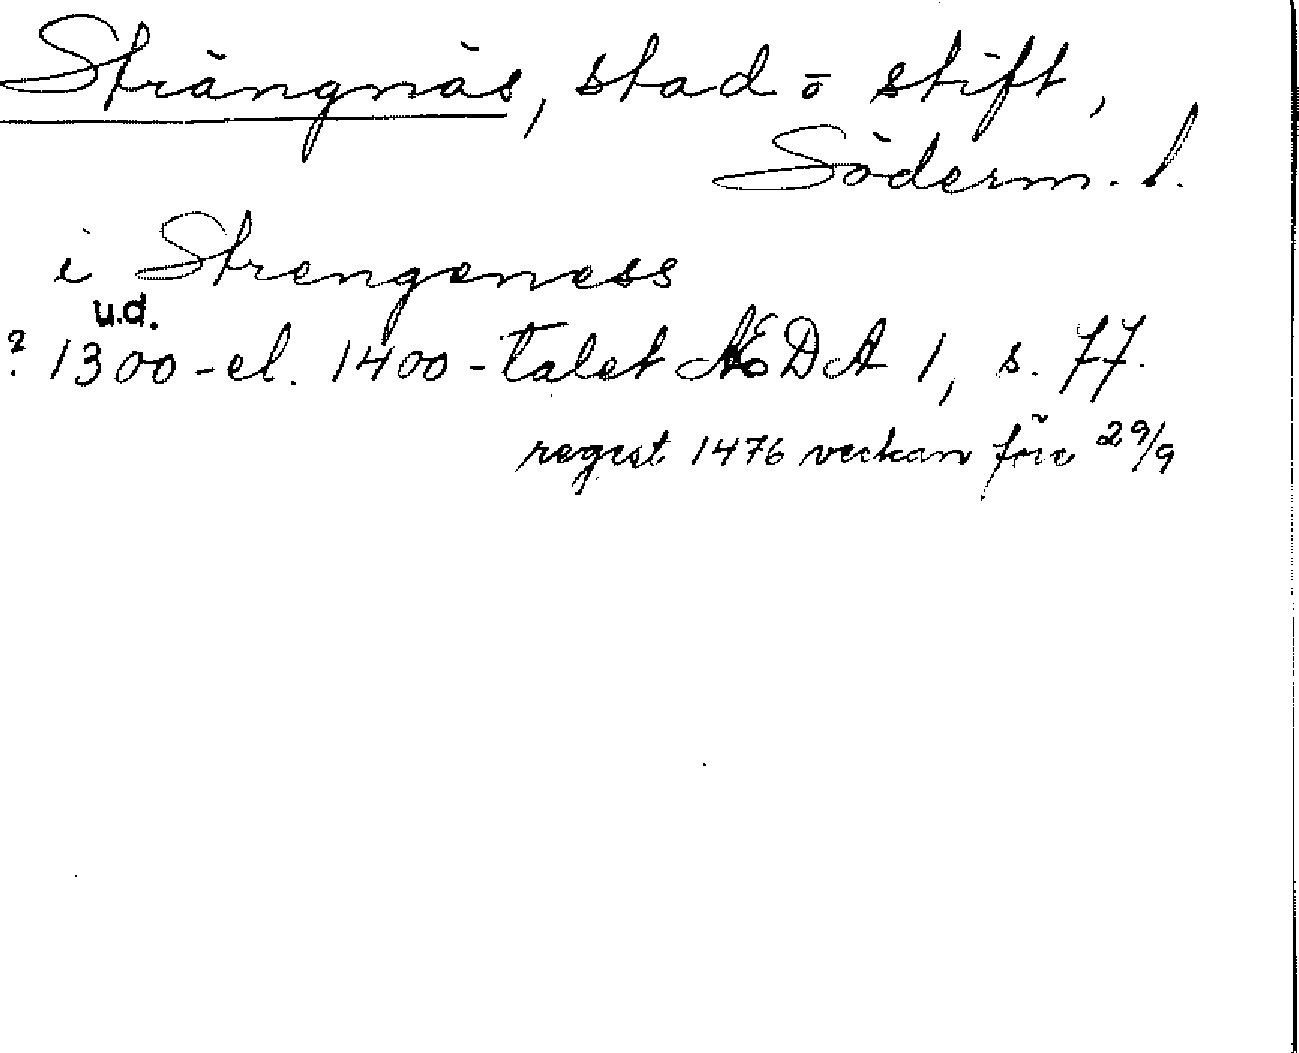 Strängnäs, stad o stift,
Söderm. l.
i Strengeness
u.d.
? 1300-el. 1400-talet ÆDA 1, s. 77.
regest 1476 veckan före 29/9